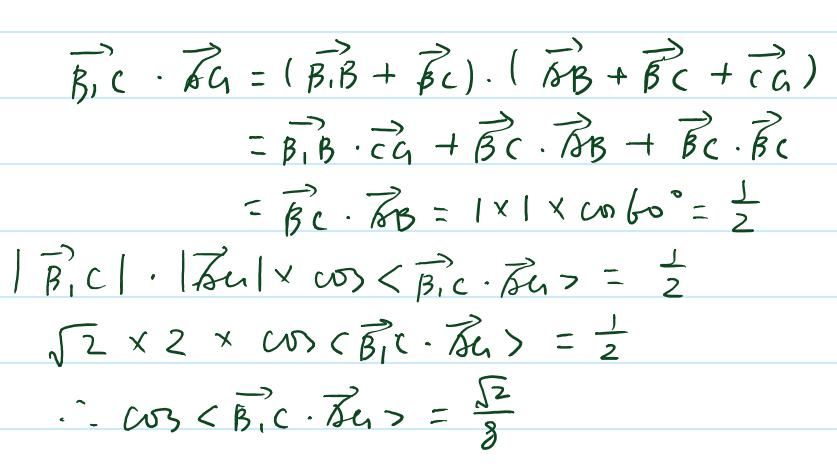 $\overrightarrow{B_1C} \cdot \overrightarrow{AC_1} = (\overrightarrow{B_1B} + \overrightarrow{BC}) \cdot (\overrightarrow{AB} + \overrightarrow{BC} + \overrightarrow{CC_1})$
$= \overrightarrow{B_1B} \cdot \overrightarrow{CC_1} + \overrightarrow{BC} \cdot \overrightarrow{AB} + \overrightarrow{BC} \cdot \overrightarrow{BC}$
$= \overrightarrow{BC} \cdot \overrightarrow{AB} = 1 \times 1 \times \cos 60° = \frac{1}{2}$
$|\overrightarrow{B_1C}| \cdot |\overrightarrow{AC_1}| \times \cos < \overrightarrow{B_1C} \cdot \overrightarrow{AC_1} > = \frac{1}{2}$
$\sqrt{2} \times 2 \times \cos < \overrightarrow{B_1C} \cdot \overrightarrow{AC_1} > = \frac{1}{2}$
$\therefore \cos < \overrightarrow{B_1C} \cdot \overrightarrow{AC_1} > = \frac{\sqrt{2}}{8}$